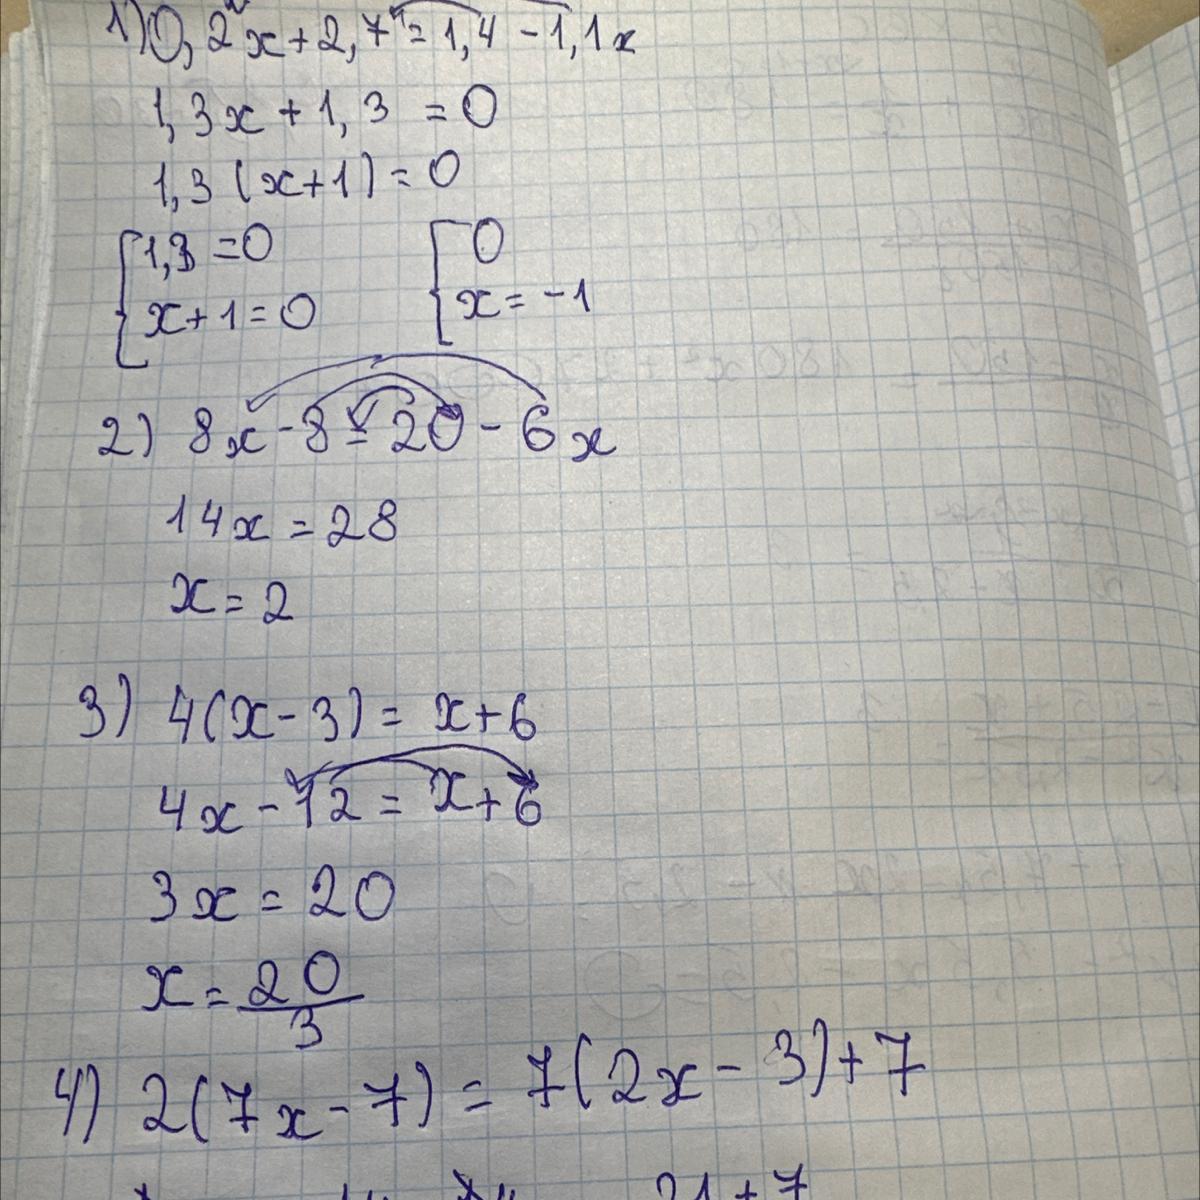 1) 0,2x + 2,7 = 1,4 - 1,1x
1,3x + 1,3 = 0
1,3 (x+1) = 0
1,3 = 0
x + 1 = 0
0
x = -1
2) 8x - 8 = 20 - 6x
14x = 28
x = 2
3) 4(x - 3) = x + 6
4x - 12 = x + 6
3x = 20
x = 20/3
4) 2(7x - 7) = 7(2x - 3) + 7
21 + 7